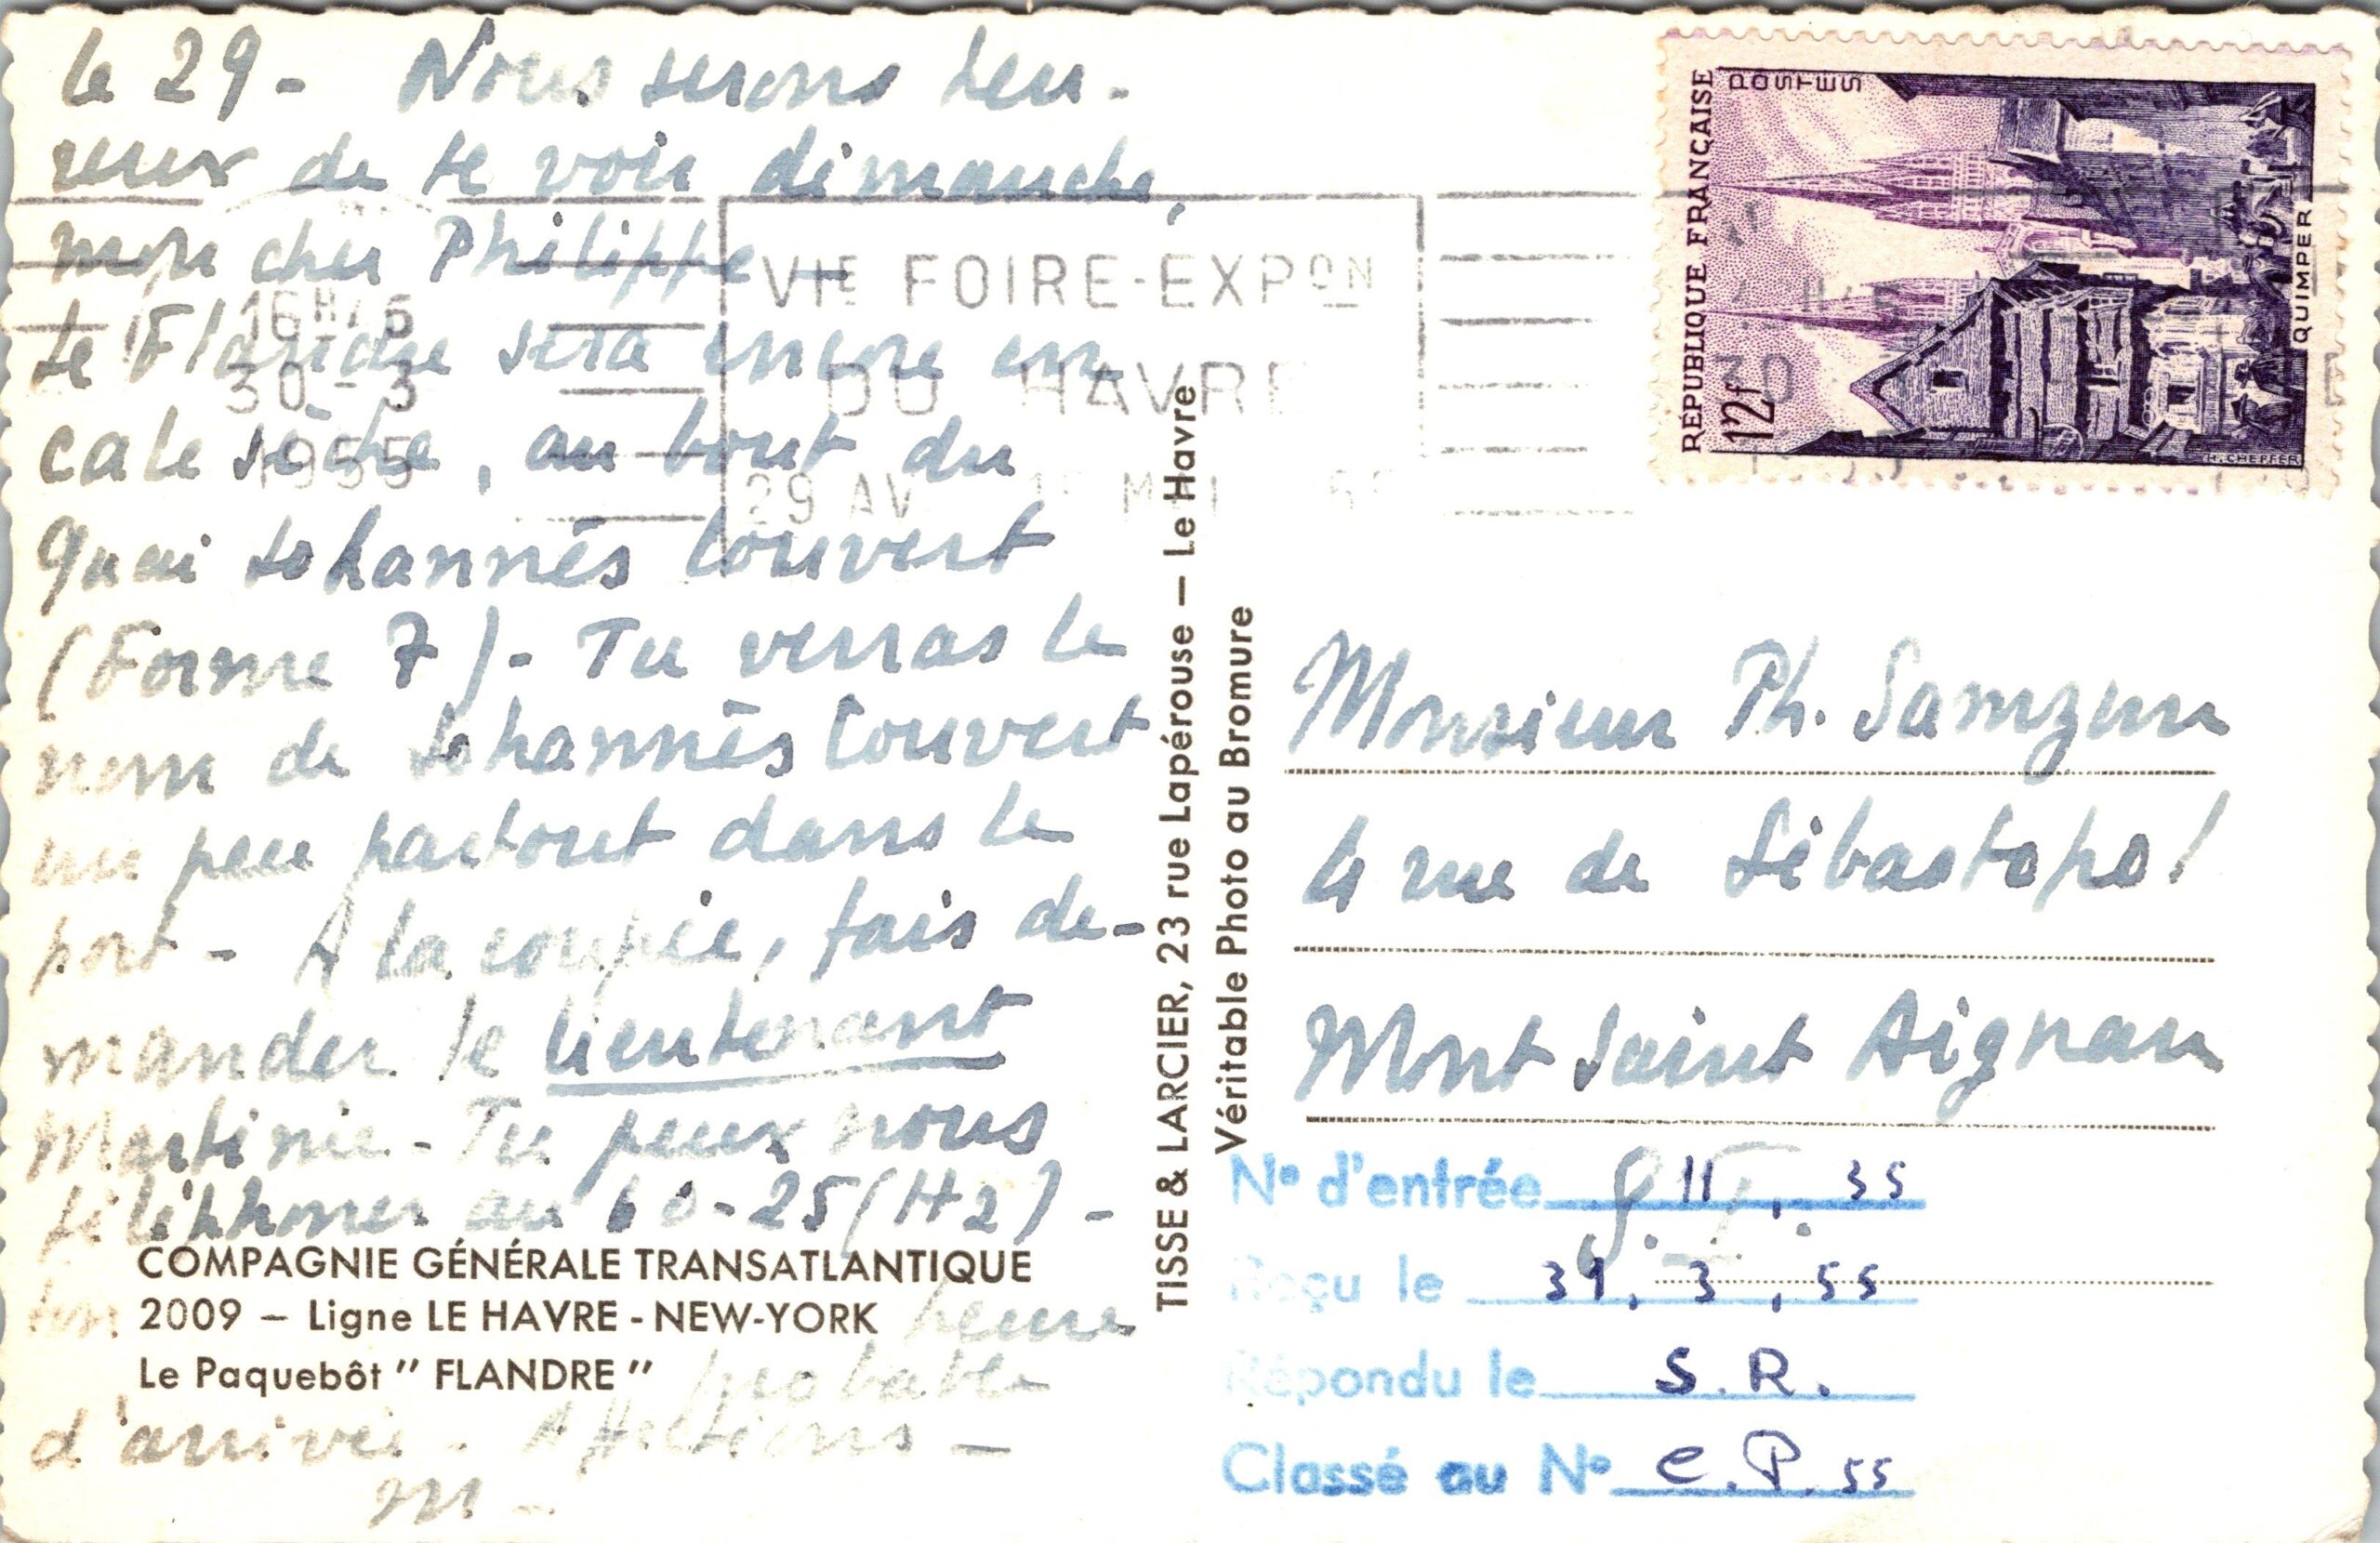 le 29 - Nous serons heu-
reux de te voir dimanche,
mon cher Philippe -
Le Flandre sera encore en
cale sèche, au bout du
Quai Johannès Couvert
(Forme 7) - Tu verras le
nom de Johannès Couvert
un peu partout dans le
port - A la coupée, fais de-
mander le lieutenant
Martinie - Tu peux nous
téléphoner au 60-25 (H2) -
ton heure
probable
d'arrivée. Affections -
M -
COMPAGNIE GÉNÉRALE TRANSATLANTIQUE
2009 – Ligne LE HAVRE - NEW-YORK
Le Paquebôt " FLANDRE "
16H
30 - 3
1955
VIE FOIRE-EXPON
DU HAVRE
29 AV MAI
TISSE & LARCIER, 23 rue Lapérouse — Le Havre
Véritable Photo au Bromure
RÉPUBLIQUE FRANÇAISE
POSTES
12f
QUIMPER
H. CHEFFER
Monsieur Ph. Samzun
4 rue de Sébastopol
Mont Saint Aignan
S. I.
N° d'entrée 11, 35
Reçu le 31. 3, 55
Répondu le S. R.
Classé au N° C. P. 55